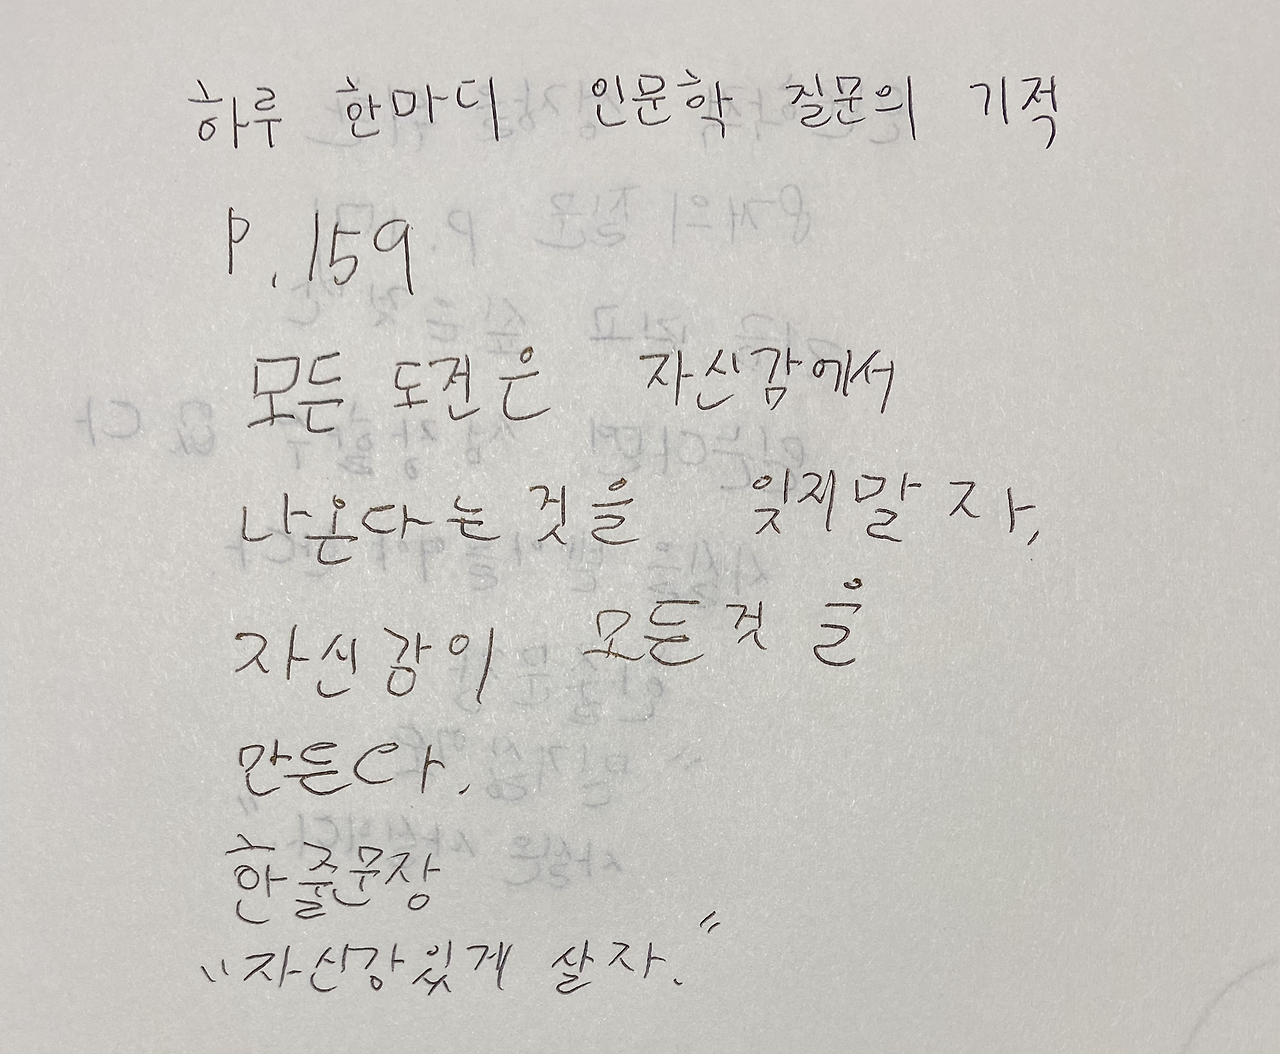 하루 한마디 인문학 질문의 기적
P.159
모든 도전은 자신감에서
나온다는것을 잊지말자.
자신감이 모든것을
만든다.
한줄문장
"자신감있게 살자."